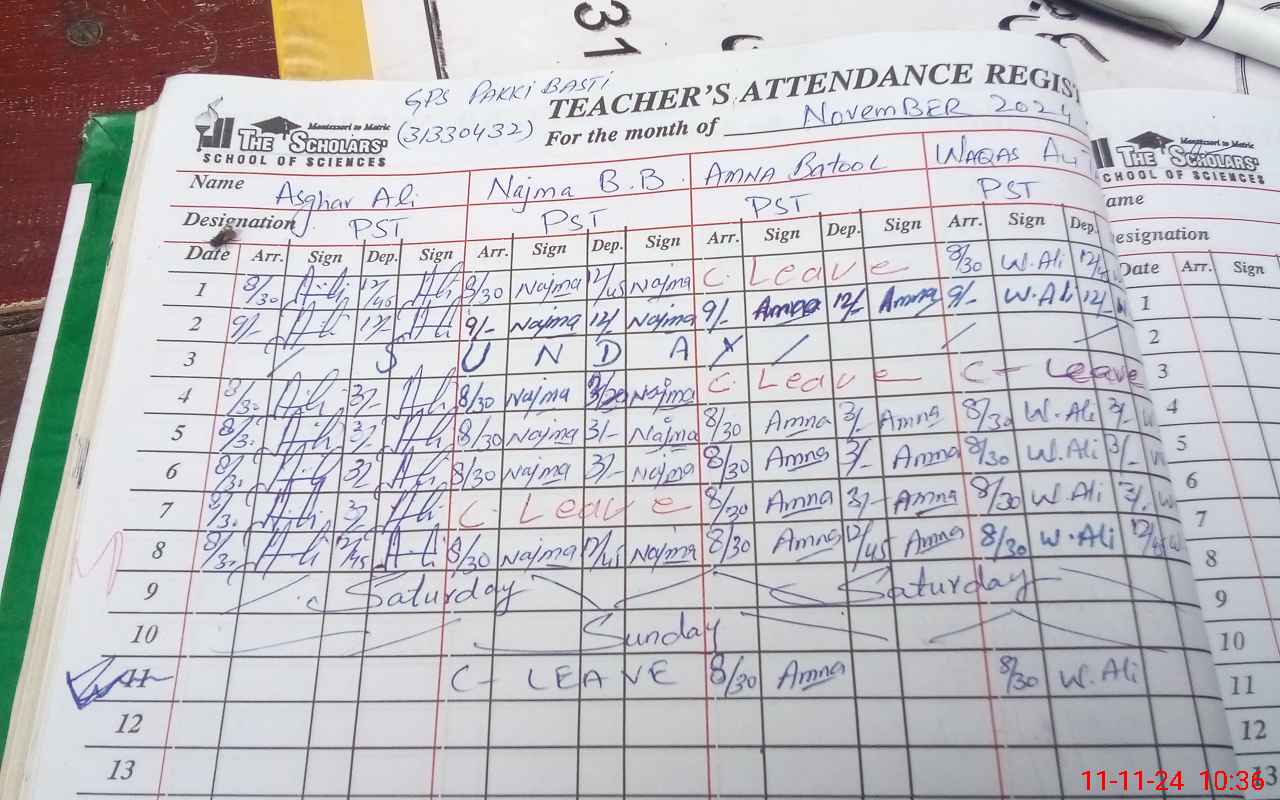 31
GPS PAKKI BASTI
(31330432)
Montessori to Matric
THE SCHOLARS'
SCHOOL OF SCIENCES
TEACHER'S ATTENDANCE REGIS
For the month of NOVEMBER 2024
Name Asghar Ali Najma B.B. AMNA Batool WAQAS Ali
Designation PST PST PST PST
Date Arr. Sign Dep. Sign Arr. Sign Dep. Sign Arr. Sign Dep. Sign Arr. Sign Dep.
1 8/30 Ali 12/45 Ali 8/30 Najma 12/45 Najma C. Leave 8/30 W.Ali
2 9/- Ali 12/- Ali 9/- Najma 12/ Najma 9/- Amna 12/- Amna 9/- W.Ali 12/-
3 S U N D A Y
4 8/30 Ali 3/- Ali 8/30 Najma Najma C. Leave C- Leave
5 8/3. Ali 3/- Ali 8/30 Najma 3/- Najma 8/30 Amna 3/- Amna 8/30 W.Ali 3/- W
6 8/3. Ali 3/- Ali 8/30 Najma 3/- Najma 8/30 Amna 3/- Amna 8/30 W.Ali 3/- W
7 8/3. Ali 3/- Ali C. Leave 8/30 Amna 3/- Amna 8/30 W.Ali 3/- W
8 8/3. Ali 12/45 Ali 8/30 Najma 12/45 Najma 8/30 Amna 12/45 Amna 8/30 W.Ali 12/45 W
9 Saturday Saturday
10 Sunday
11 C- LEAVE 8/30 Amna 8/30 W.Ali
12
13
Montessori to Matric
THE SCHOLARS'
CHOOL OF SCIENCES
ame
esignation
Date Arr. Sign
1
2
3
4
5
6
7
8
9
10
11
12
13
11-11-24 10:36